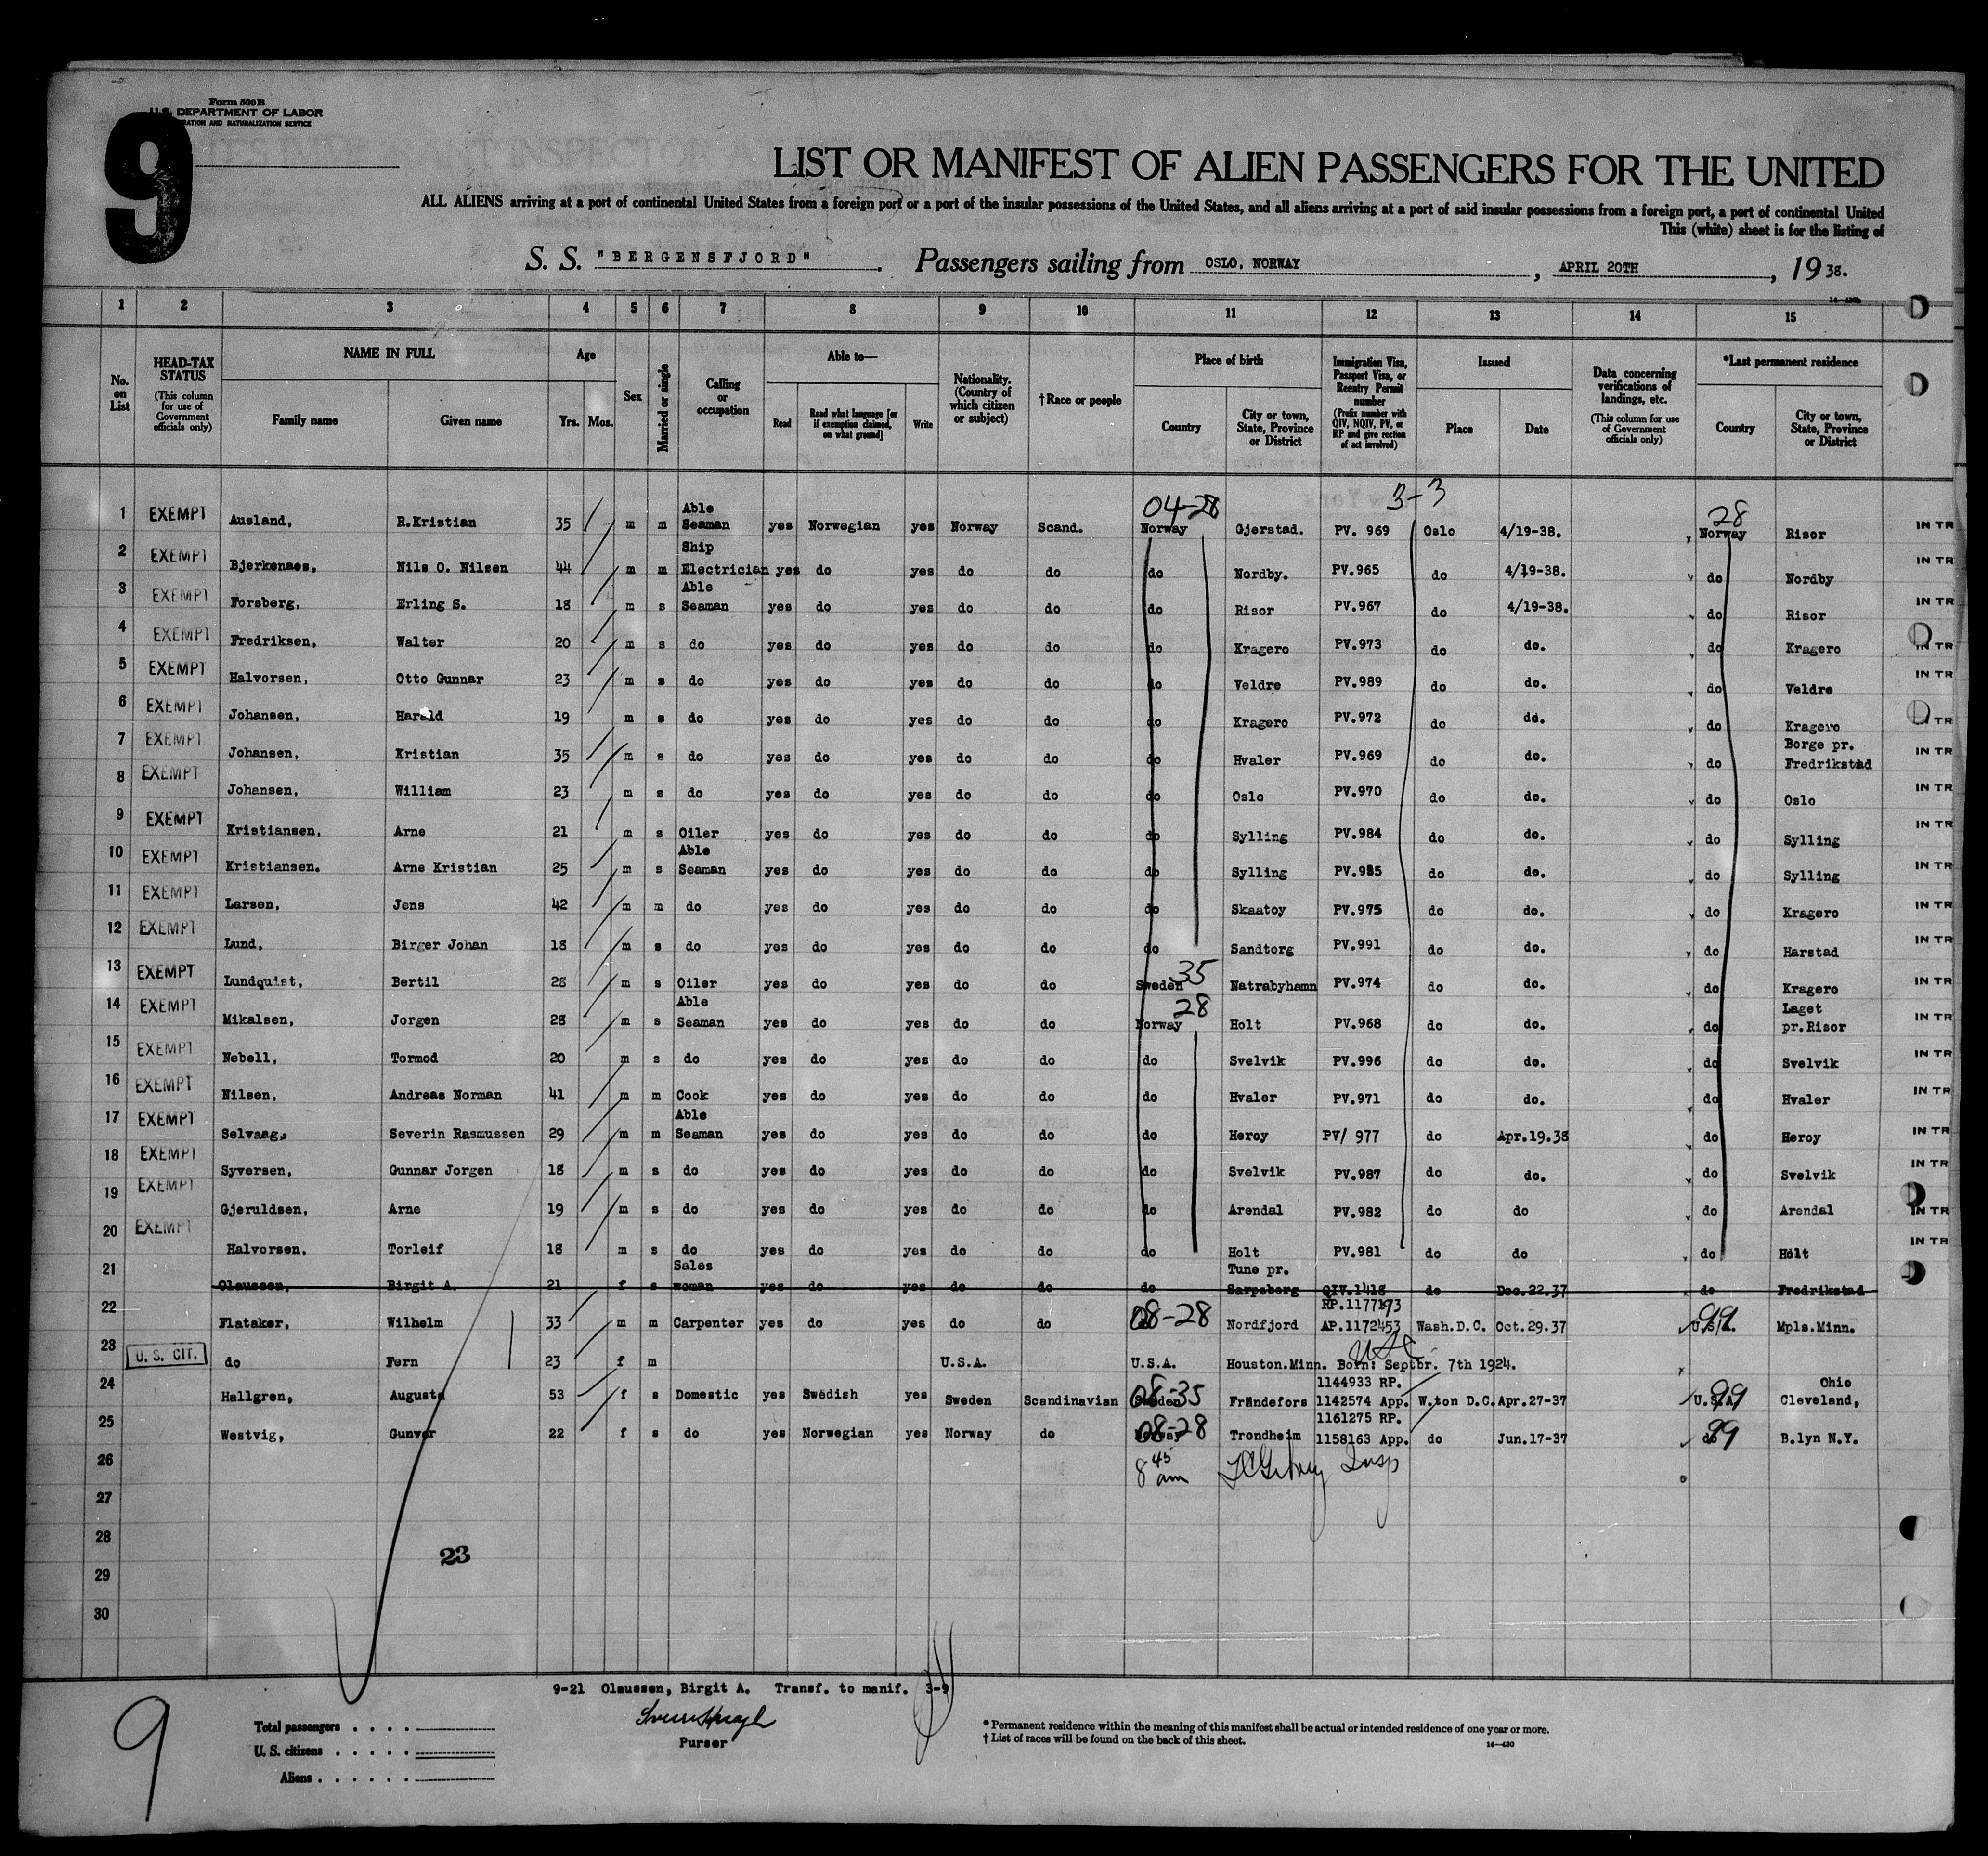 Form 500 B
U.S. DEPARTMENT OF LABOR
IMMIGRATION AND NATURALIZATION SERVICE
9
LIST OR MANIFEST OF ALIEN PASSENGERS FOR THE UNITED
ALL ALIENS arriving at a port of continental United States from a foreign port or a port of the insular possessions of the United States, and all aliens arriving at a port of said insular possessions from a foreign port, a port of continental United
This (white) sheet is for the listing of
S. S. "BERGENSFJORD". Passengers sailing from OSLO, NORWAY, APRIL 20TH, 1938.
1 2 3 4 5 6 7 8 9 10 11 12 13 14 15
No. on List
HEAD-TAX STATUS (This column for use of Government officials only)
NAME IN FULL
Family name Given name
Age
Yrs. Mos.
Sex
Married or single
Calling or occupation
Able to—
Read Read what language [or if exemption claimed, on what ground] Write
Nationality. (Country of which citizen or subject)
†Race or people
Place of birth
Country City or town, State, Province or District
Immigration Visa, Passport Visa, or Reentry Permit number (Prefix number with QIV, NQIV, PV, or RP and give section of act involved)
Issued
Place Date
Data concerning verifications of landings, etc. (This column for use of Government officials only)
*Last permanent residence
Country City or town, State, Province or District
04-28 3-3 28
1 EXEMPT Ausland, R.Kristian 35 m m Able Seaman yes Norwegian yes Norway Scand. Norway Gjerstad. PV. 969 Oslo 4/19-38. Norway Risor IN TR
2 EXEMPT Bjerkenaes, Nils O. Nilsen 44 m m Ship Electrician yes do yes do do do Nordby. PV.965 do 4/19-38. do Nordby IN TR
3 EXEMPT Forsberg, Erling S. 18 m s Able Seaman yes do yes do do do Risor PV.967 do 4/19-38. do Risor IN TR
4 EXEMPT Fredriksen, Walter 20 m s do yes do yes do do do Kragero PV.973 do do. do Kragero IN TR
5 EXEMPT Halvorsen, Otto Gunnar 23 m s do yes do yes do do do Veldre PV.989 do do. do Veldre IN TR
6 EXEMPT Johansen, Harald 19 m s do yes do yes do do do Kragero PV.972 do do. do Kragero TR
7 EXEMPT Johansen, Kristian 35 m s do yes do yes do do do Hvaler PV.969 do do. do Borge pr. Fredrikstad IN TR
8 EXEMPT Johansen, William 23 m s do yes do yes do do do Oslo PV.970 do do. do Oslo IN TR
9 EXEMPT Kristiansen, Arne 21 m s Oiler yes do yes do do do Sylling PV.984 do do. do Sylling IN TR
10 EXEMPT Kristiansen. Arne Kristian 25 m s Able Seaman yes do yes do do do Sylling PV.985 do do. do Sylling IN TR
11 EXEMPT Larsen, Jens 42 m m do yes do yes do do do Skaatoy PV.975 do do. do Kragero IN TR
12 EXEMPT Lund, Birger Johan 18 m s do yes do yes do do do Sandtorg PV.991 do do. do Harstad IN TR
13 EXEMPT Lundquist, Bertil 28 m s Oiler yes do yes do do Sweden 35 Natrabyhamn PV.974 do do. do Kragero IN TR
14 EXEMPT Mikalsen, Jorgen 28 m s Able Seaman yes do yes do do Norway 28 Holt PV.968 do do. do Laget pr.Risor IN TR
15 EXEMPT Nebell, Tormod 20 m s do yes do yes do do do Svelvik PV.996 do do. do Svelvik IN TR
16 EXEMPT Nilsen, Andreas Norman 41 m m Cook yes do yes do do do Hvaler PV.971 do do. do Hvaler IN TR
17 EXEMPT Selvaag, Severin Rasmussen 29 m m Able Seaman yes do yes do do do Heroy PV/ 977 do Apr.19.38 do Heroy IN TR
18 EXEMPT Syversen, Gunnar Jorgen 18 m s do yes do yes do do do Svelvik PV.987 do do. do Svelvik IN TR
19 EXEMPT Gjeruldsen, Arne 19 m s do yes do yes do do do Arendal PV.982 do do do Arendal IN TR
20 EXEMPT Halvorsen, Torleif 18 m s do yes do yes do do do Holt PV.981 do do do Holt IN TR
21 Olaussen, Birgit A. 21 f s Sales woman yes do yes do do do Tune pr. Sarpsborg QIV.1418 do Dec.22.37 do Fredrikstad
22 Flataker, Wilhelm 33 m m Carpenter yes do yes do do 08-28 Nordfjord RP.1177193 AP.1172453 Wash.D.C. Oct.29.37 U.S.A. 99 Mpls.Minn.
23 U. S. CIT. do Fern 23 f m U.S.A. U.S.A. Houston.Minn. Born: Septbr. 7th 1924.
24 Hallgren, Augusta 53 f s Domestic yes Swedish yes Sweden Scandinavian Sweden 08-35 Frändefors 1144933 RP. 1142574 App. W.ton D.C. Apr.27-37 U.S.A. 99 Ohio Cleveland,
25 Westvig, Gunvor 22 f s do yes Norwegian yes Norway do Norway 08-28 Trondheim 1161275 RP. 1158163 App. do Jun.17-37 do 99 B.lyn N.Y.
26 8 45 am Insp
27
28
23
29
30
9-21 Olaussen, Birgit A. Transf. to manif. 3-9
Purser
9
Total passengers . . . .
U. S. citizens . . . . .
Aliens . . . . . .
* Permanent residence within the meaning of this manifest shall be actual or intended residence of one year or more.
† List of races will be found on the back of this sheet.
14—430